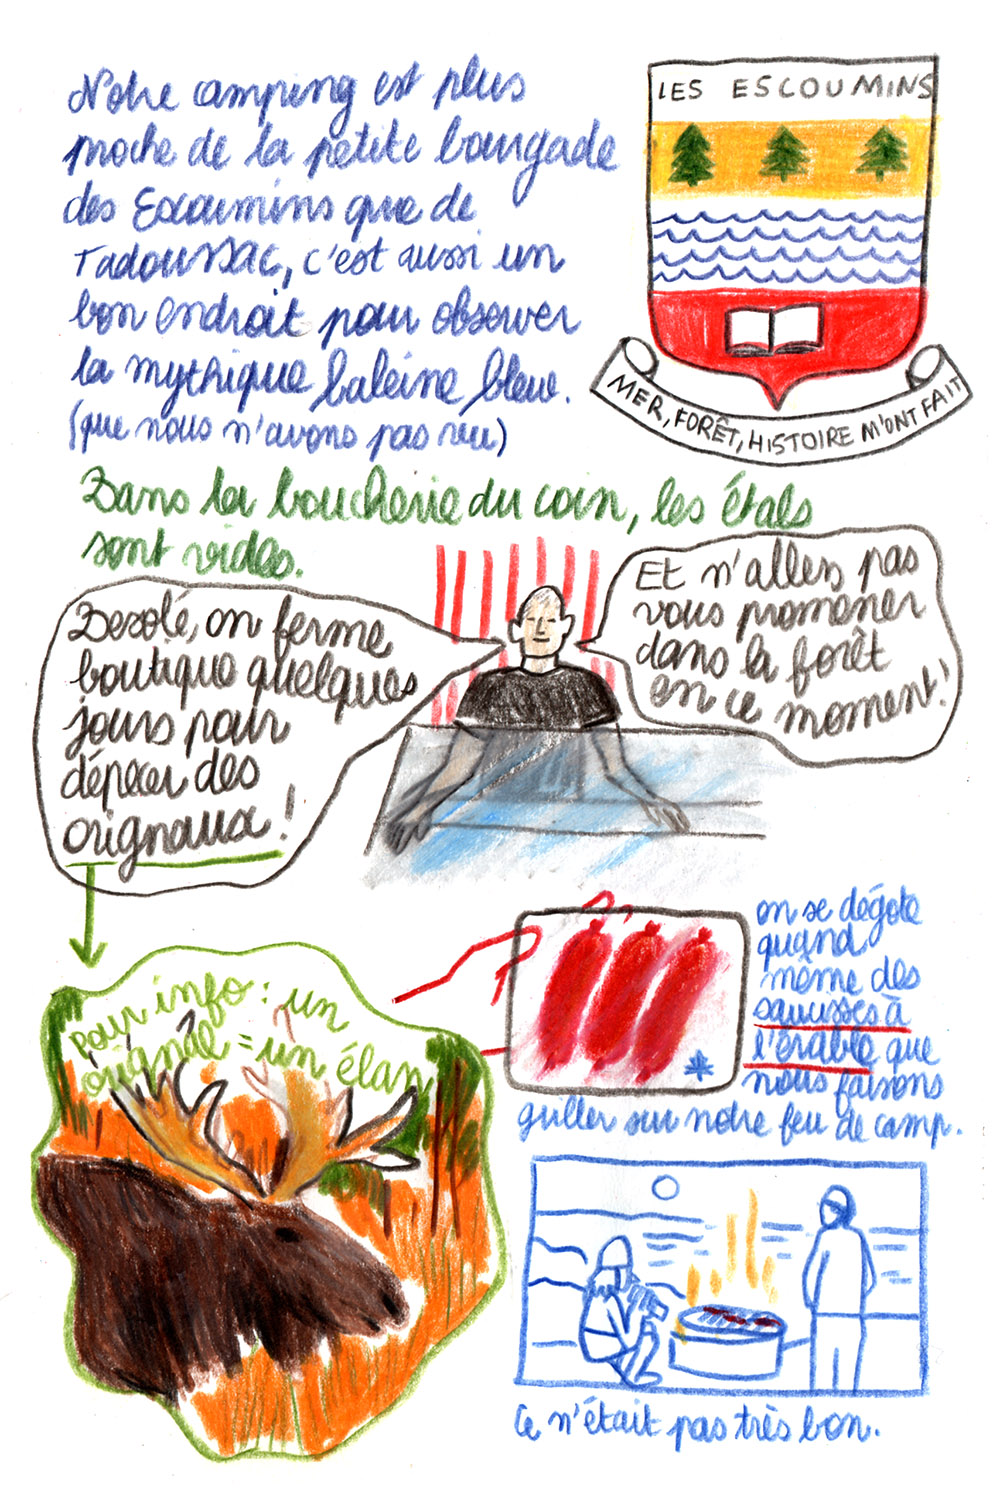 Notre camping est plus
proche de la petite bourgade
des Escoumins que de
Tadoussac, c'est aussi un
bon endroit pour observer
la mythique baleine bleue.
(que nous n'avons pas vue)
LES ESCOUMINS
MER, FORÊT, HISTOIRE M'ONT FAIT
Dans la boucherie du coin, les étals
sont vides.
Desolé, on ferme
boutique quelques
jours pour
dépecer des
orignaux !
Et n'allez pas
vous promener
dans la forêt
en ce moment !
pour info : un
orignal = un élan
on se dégote
quand
même des
saucisses à
l'érable que
nous faisons
griller sur notre feu de camp.
Ce n'était pas très bon.